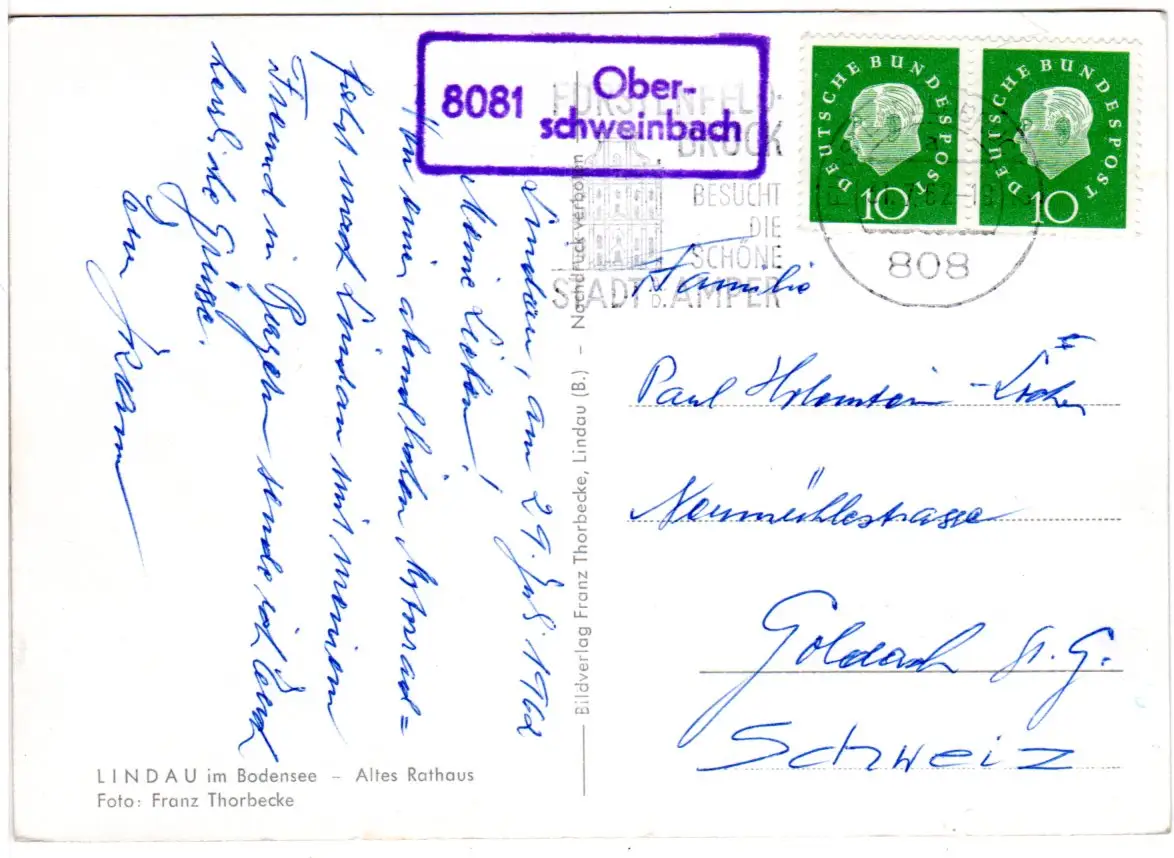 8081
Ober-
schweinbach
FÜRSTENFELD-
BRUCK
BESUCHT
DIE
SCHÖNE
STADT A.D. AMPER
DEUTSCHE BUNDESPOST
10
DEUTSCHE BUNDESPOST
10
808
Lindau, am 29. Juli 1962
Meine Lieben!
Auf einer abendlichen Motorrad=
fahrt nach Lindau mit meinem
Freund in Bregenz sende ich Euch
herzliche Grüsse.
Euer
Familie
Paul
Neumühlestrasse
Goldach St. G.
Schweiz
Bildverlag Franz Thorbecke, Lindau (B.) – Nachdruck verboten
LINDAU im Bodensee – Altes Rathaus
Foto: Franz Thorbecke